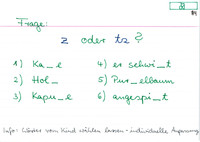 Frage:
z oder tz ?
1) Ka_e 4) er schwi_t
2) Hol_ 5) Pur_elbaum
3) Kapu_e 6) angespi_t
Info: Wörter vom Kind wählen lassen - individuelle Anpassung